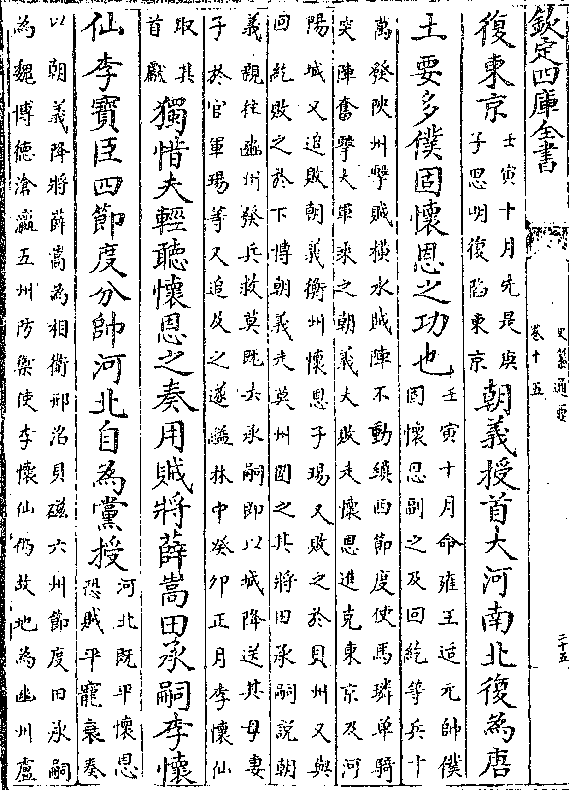 欽定四庫全書
史纂通要
卷十五
二十五
復東京
壬寅十月先是庚
子思明復陷東京
朝義授首大河南北復為唐
土要多僕固懷恩之功也
壬寅十月命雍王适元帥僕
固懷恩副之及回紇等兵十
萬發陜州擊賊橫水賊陣不動鎮西節度使馬璘单騎
突陣奮擊大軍乘之朝義大敗走懷恩進克東京及河
陽城又追敗朝義衛州懷恩子瑒又敗之於貝州又與
回紇敗之於下博朝義走莫州圍之其將田承嗣説朝
義親往幽州發兵救莫既去承嗣即以城降送其母妻
子於官軍瑒等又追及之遂縊林中癸卯正月李懷仙
取其
首獻
獨惜夫輕聽懷恩之奏用賊將薛嵩田承嗣李懷
仙李寳臣四節度分帥河北自為黨援
河北既平懷恩
恐賊平寵衰奏
以朝義降將薛嵩為相衛邢洺貝磁六州節度田承嗣
為魏博德滄瀛五州防禦使李懷仙仍故地為幽州盧